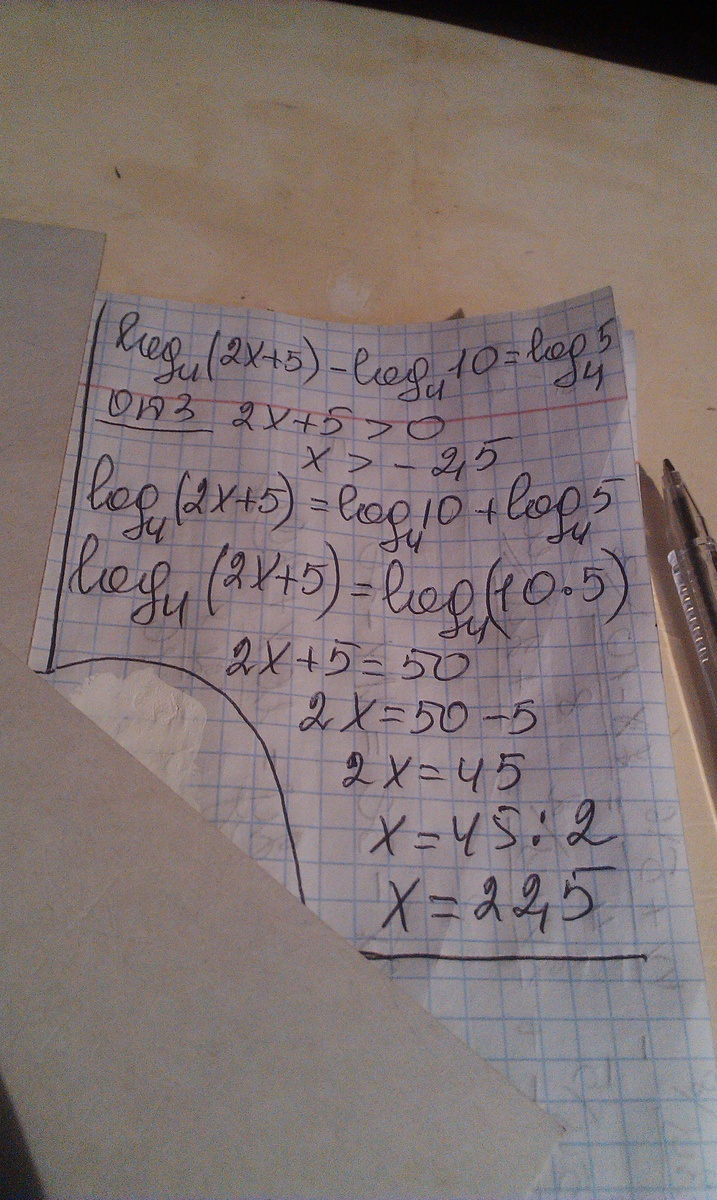 log₄(2x+5) - log₄10 = log₄5
ОПЗ 2x+5 > 0
x > -2,5
log₄(2x+5) = log₄10 + log₄5
log₄(2x+5) = log₄(10·5)
2x+5=50
2x=50-5
2x=45
x=45:2
x=22,5